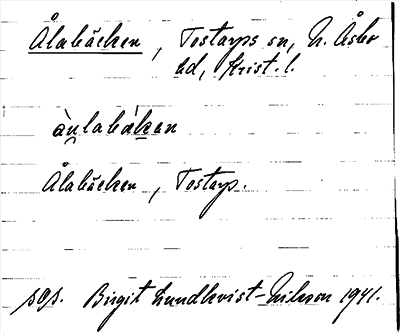 Ålabäcken, Tostarps sn, N. Åsbo
hd, Krist. l.
àu̯labäken
Ålabäcken, Tostarp.
sgs. Birgit Lundkvist-Nilsson 1941.